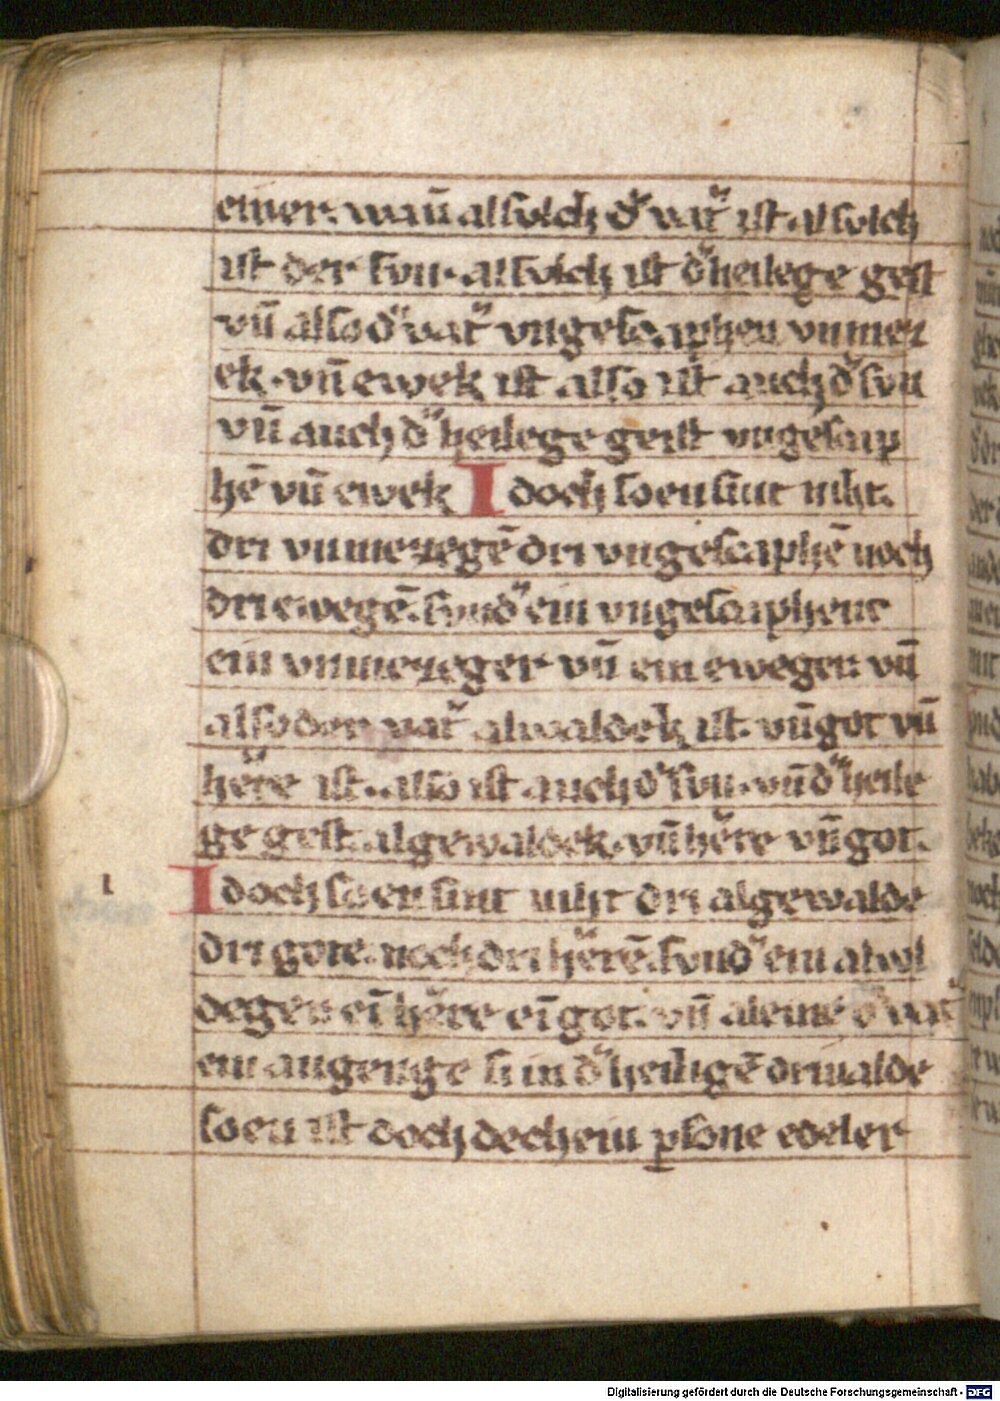 einer. wan̄ alsolch d᷑ vat᷑ ist. alsolch
ist der son. alsolch ist d᷑ heilege gest
vn̄ also d᷑ vat᷑ vngescaphen vnmez
ek. vn̄ ewek ist also ist auch d᷑ son
vn̄ auch d᷑ heilege geist vngescap
hē vn̄ ewek I doch so en sint niht.
dri vnmezegē dri vngescaphē noch
dri ewegē. sund᷑ ein vngescaphene
ein vnmezeger vn̄ ein eweger. vn̄
also der vat᷑ alwaldek ist. vn̄ got vn̄
h᷑re ist. also ist auch d᷑ son. vn̄ d᷑ heile
ge gest. algewaldek. vn̄ h᷑re vn̄ got.
I doch so en sint niht dri algewalde
dri gote. noch dri h᷑rē. sund᷑ ein alwal
deger ei᷑ h᷑re ei᷑ got. vn̄ aleine d᷑ vat᷑
ein angenge si in d᷑ heiligē driualde
so en ist doch dechein p̱sone edeler
ı
Digitalisierung gefördert durch die Deutsche Forschungsgemeinschaft - DFG